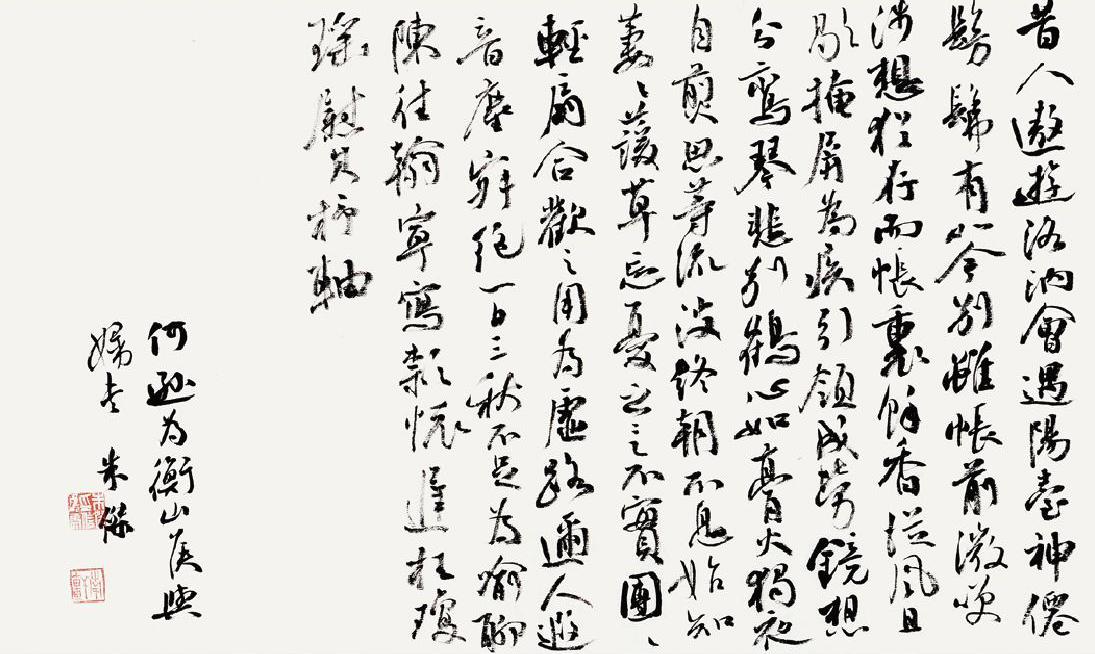 昔人遨遊洛汭會遇陽臺神僊
髣髴有如今別雖帳前微笑
涉想猶存而帳裏餘香從風且
歇掩屏為疾引領成勞鏡想
分鸞琴悲別鶴心如膏火獨夜
自煎思等流波終朝不息始知
萋〻蘐草忘憂之言不實團〻
輕扇合歡之用為虛路邇人遐
音塵寂絕一日三秋不足為喻聊
陳往翰寧寫款懷遲枉瓊
瑤慰其杼軸
何遜為衡山侯與
婦書 朱